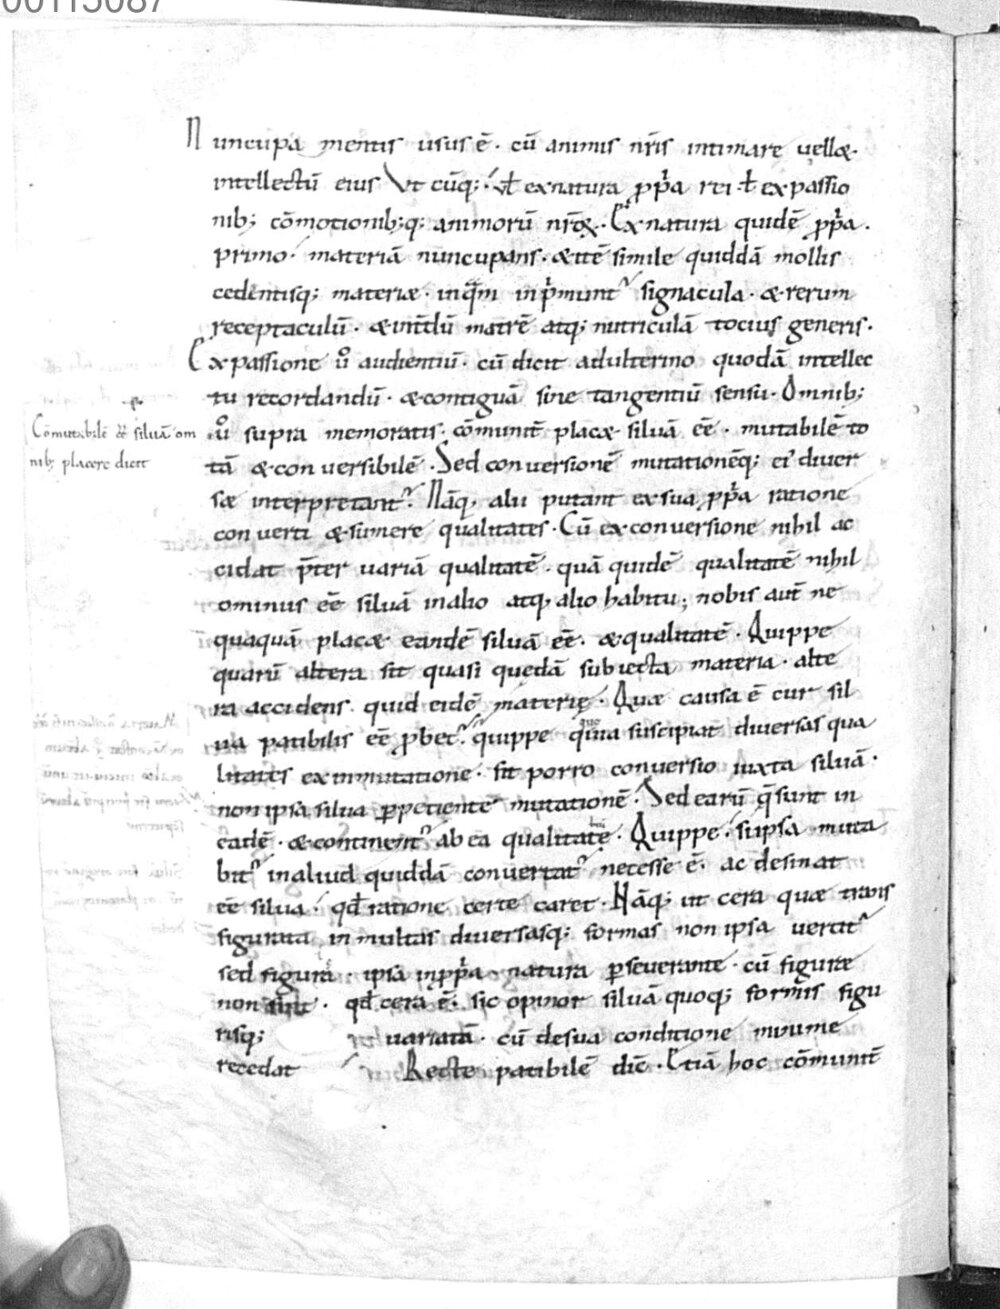 00115087
Nuncupa mentis usus ē · cū animis nr̄is intimare uellæ ·
intellectū eius Vt cūq; ·ł ex natura ꝓpͥa rei ·ł ex passio
nib; cōmotionib;q; animorū nr̄oꝝ · Ex natura quidē ꝓpͥa ·
primo · materiā nuncupans · & itē simile quiddā mollis
cedentisq; materiæ · in qͣm inpͥmunt᷑ signacula · & rerum
receptaculū · & int̄dū matrē atq; nutriculā tocius generis ·
Ex passione ū audientiū · cū dicit adulterino quodā intellec
tu recordandū · & contiguā sine tangentiū sensu · Omnib;
ū supra memoratis · cōmunit̄ placæ siluā eē · mutabilē to
Cōmutabilē eē siluā om
nib; placere dicit
tā & conuersibilē · Sed conuersionē mutationēq; ei᷒ diuer
sæ interpretant᷑ · Nāq; alii putant ex sua ꝓpͥa ratione
conuerti & sumere qualitates · Cū ex conuersione nihil ac
cidat p̄ter uariā qualitatē · quā quidē qualitatē nihil
ominus eē siluā in alio atq; alio habitu; nobis aut̄ ne
quaquā placæ eandē siluā eē · & qualitatē · Quippe
quarū altera sit quasi quedā subiecta materia · alte
ra accidens · quid eidē materię · Quæ causa ē cur sil
ua patibilis eē ꝓbet᷑ · quippe quo suscipiat diuersas qua
litates ex inmutatione · fit porro conuersio iuxta siluā ·
non ipsa silua ꝑpetiente mutationē · Sed earū q̄ sunt in
eadē · & continent᷑ ab ea qualitatē · Quippe · si ipsa muta
bit᷑ in aliud quiddā conuertat᷑ necesse ē · ac desinat
eē silua · qđ ratione certe caret · Nāq; ut cera quæ trans
figurata in multas diuersasq; formas non ipsa uertit᷑
sed figura · ipsa in ꝓpͥa natura ꝑseuerante · cū figuræ
non sint · qđ cera ē · sic opinor siluā quoq; formis figu
risq; uariatā · cū de sua conditione minime
recedat Recte patibilē dic̄ · Etiā hoc cōmunit̄